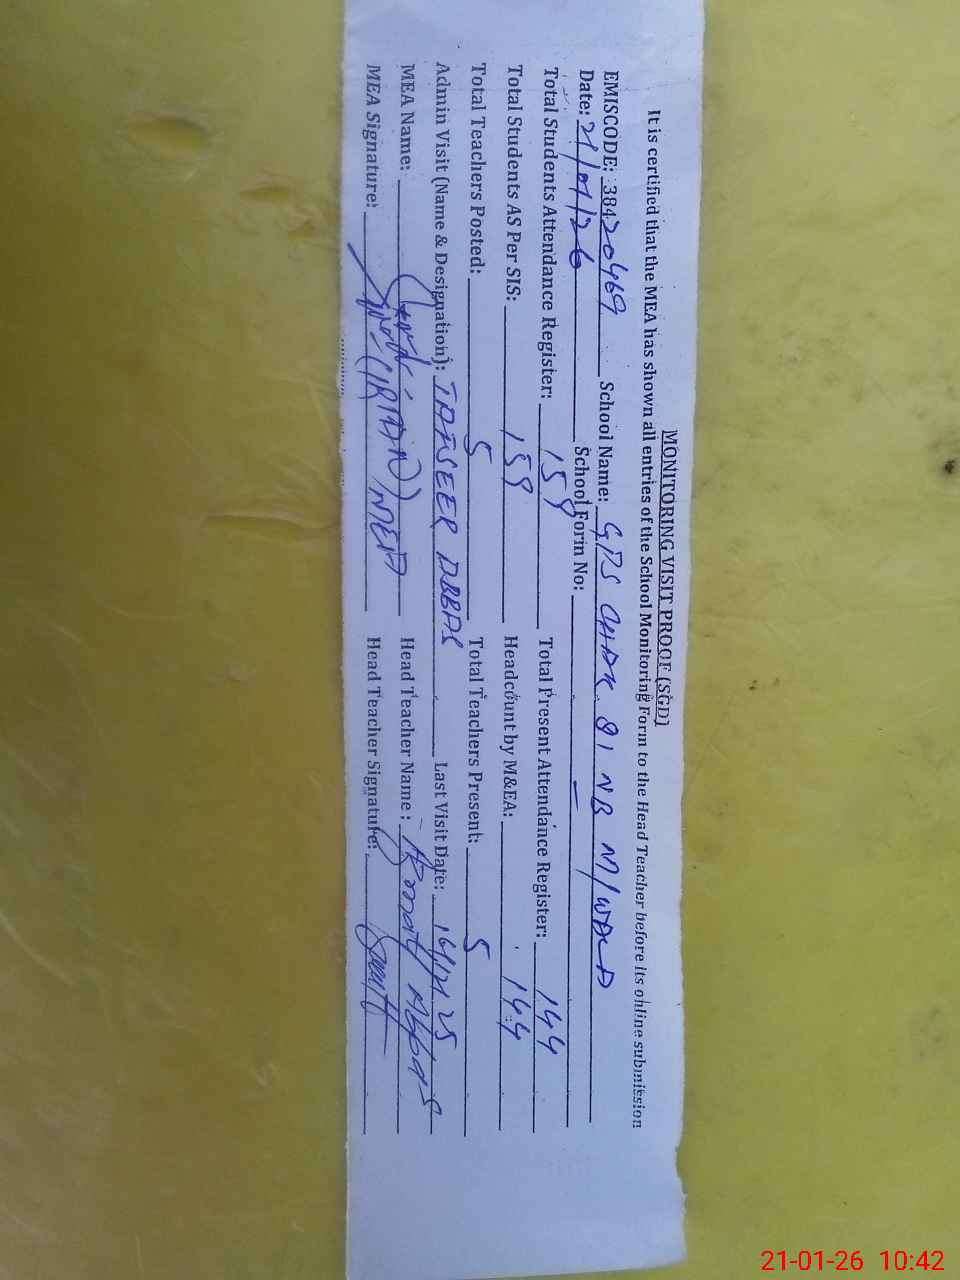 MONITORING VISIT PROOF (SGD)
It is certified that the MEA has shown all entries of the School Monitoring Form to the Head Teacher before its online submission
EMISCODE: 38420469 School Name: GPS CHAK 81 NB M/WALA
Date: 21/01/26 School Form No: –
Total Students Attendance Register: 159 Total Present Attendance Register: 144
Total Students AS Per SIS: 159 Headcount by M&EA: 144
Total Teachers Posted: 5 Total Teachers Present: 5
Admin Visit (Name & Designation): Last Visit Date: 16/12/25
MEA Name: Head Teacher Name: Abbas
MEA Signature: (IRFAN) MEA Head Teacher Signature:
21-01-26 10:42